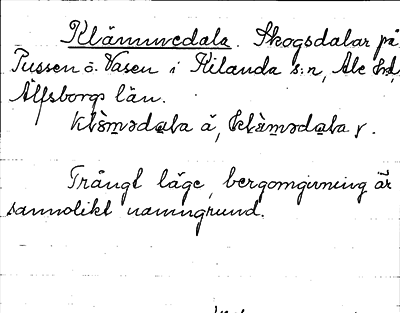 Klämmedala. Skogsdalar på
Tussen o. Vasen i Kilanda s:n, Ale hd,
Älfsborgs län.
klämədala å, klàmədala r.
Trångt läge, bergomgivning är
sannolikt namngrund.